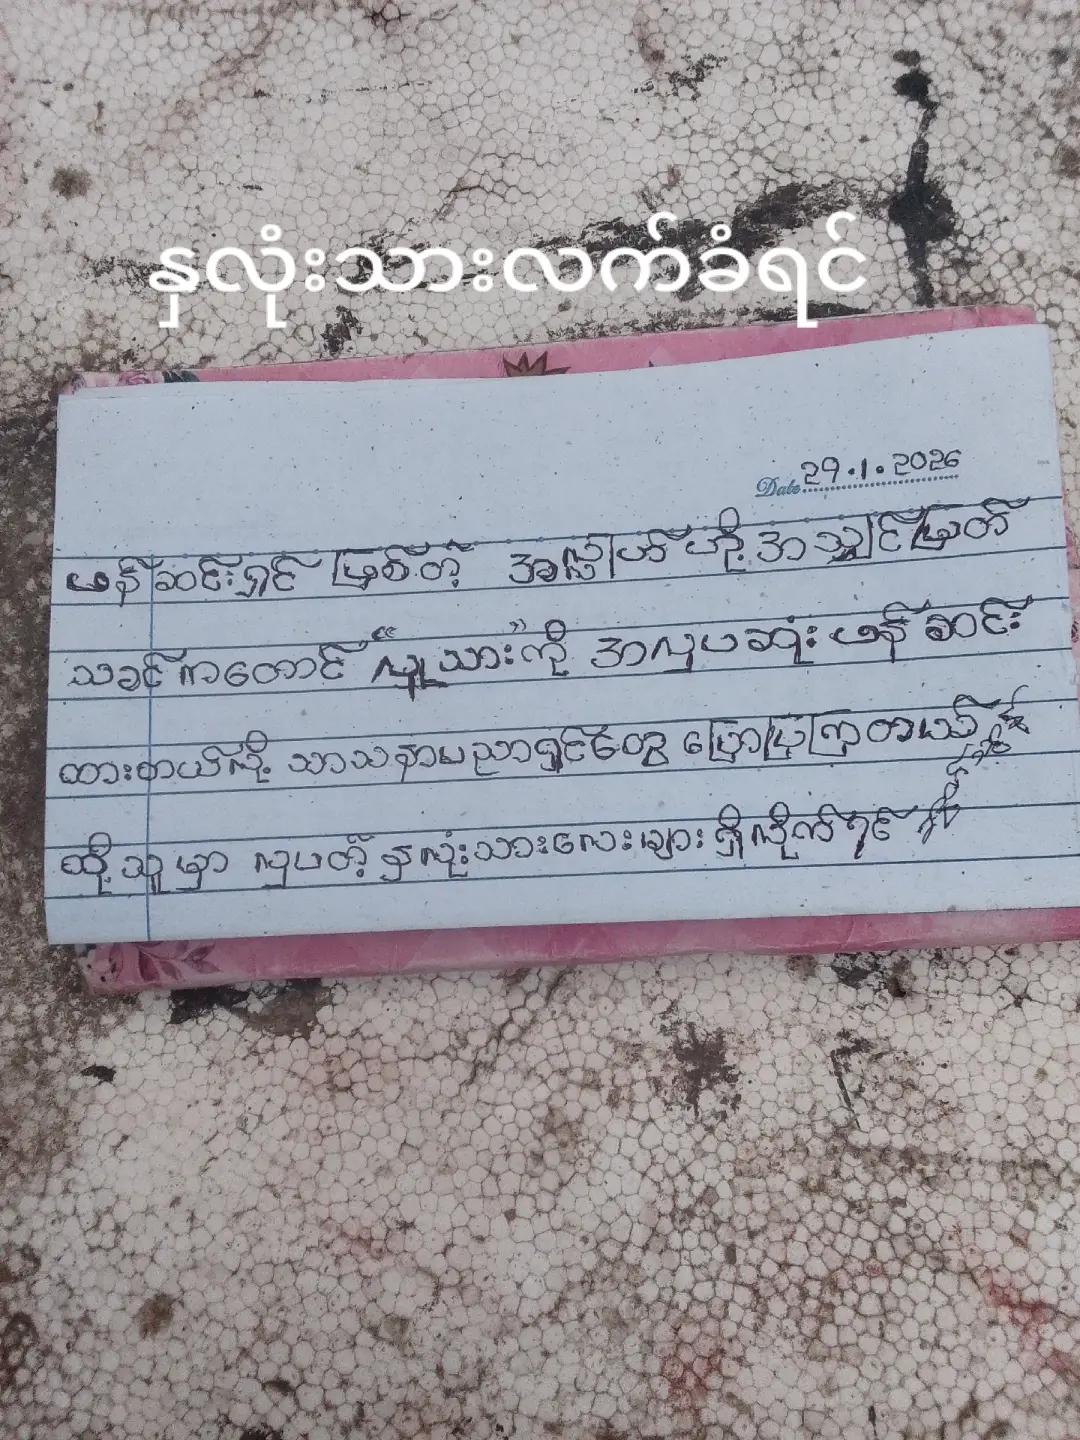 နှလုံးသားလက်ခံရင်
Date 29.1.2026
ဖန်ဆင်းရှင် ဖြစ်တဲ့ အလ္လာဟ် ဟို့အသျှင်မြတ်
သခင်ကတောင် "လူသား"ကို အလှပဆုံး ဖန်ဆင်း
ထားတယ်လို့ သာသနာပညာရှင်တွေ ပြောပြကြတယ်
ထို့သူမှာ လှပတဲ့ နှလုံးသားလေးများ ရှိလိုက်ရင်